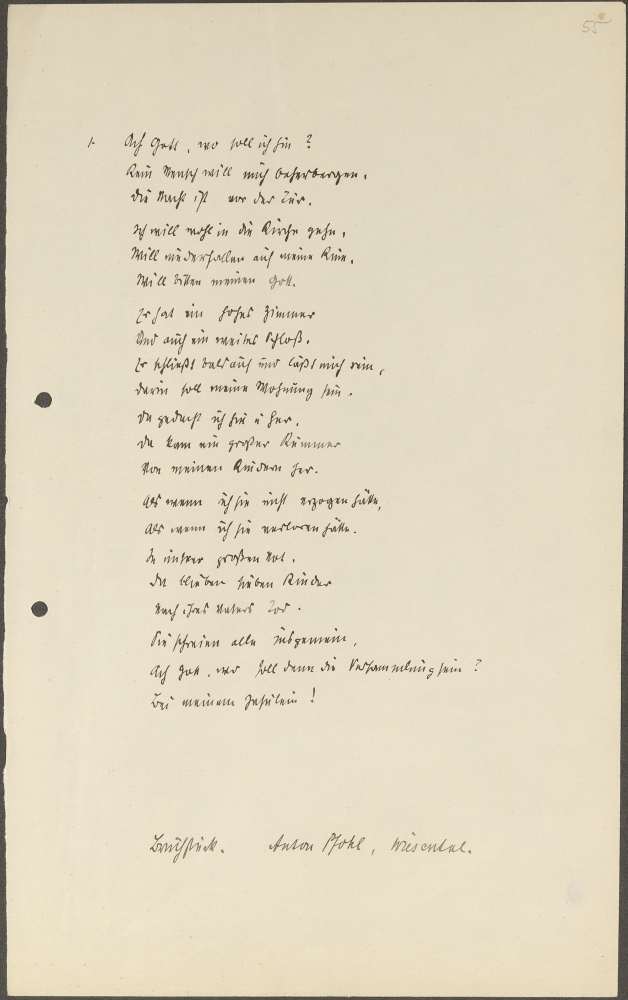 55
1. Ach Gott, wo soll ich hin?
Kein Mensch will mich beherbergen.
Die Nacht ist vor der Tür.
Ich will wohl in die Kirche gehn,
Will niederfallen auf meine Knie,
Will bitten meinen Gott.
Er hat ein hohes Zimmer
Und auch ein weites Schloß.
Er schließt bald auf und läßt mich rein,
darin soll meine Wohnung sein.
Da gedacht ich hin u her,
da kam ein großer Kummer
Von meinen Kindern her.
Als wenn ich sie nicht erzogen hätte,
Als wenn ich sie verloren hätte.
In unsrer großen Not.
Da blieben sieben Kinder
Nach ihres Vaters Tod.
Sie schreien alle insgemein,
Ach Gott, wo soll denn die Versammlung sein?
Bei meinem Jesulein!
Bruchstück. Anton Pfohl, Wiesental.